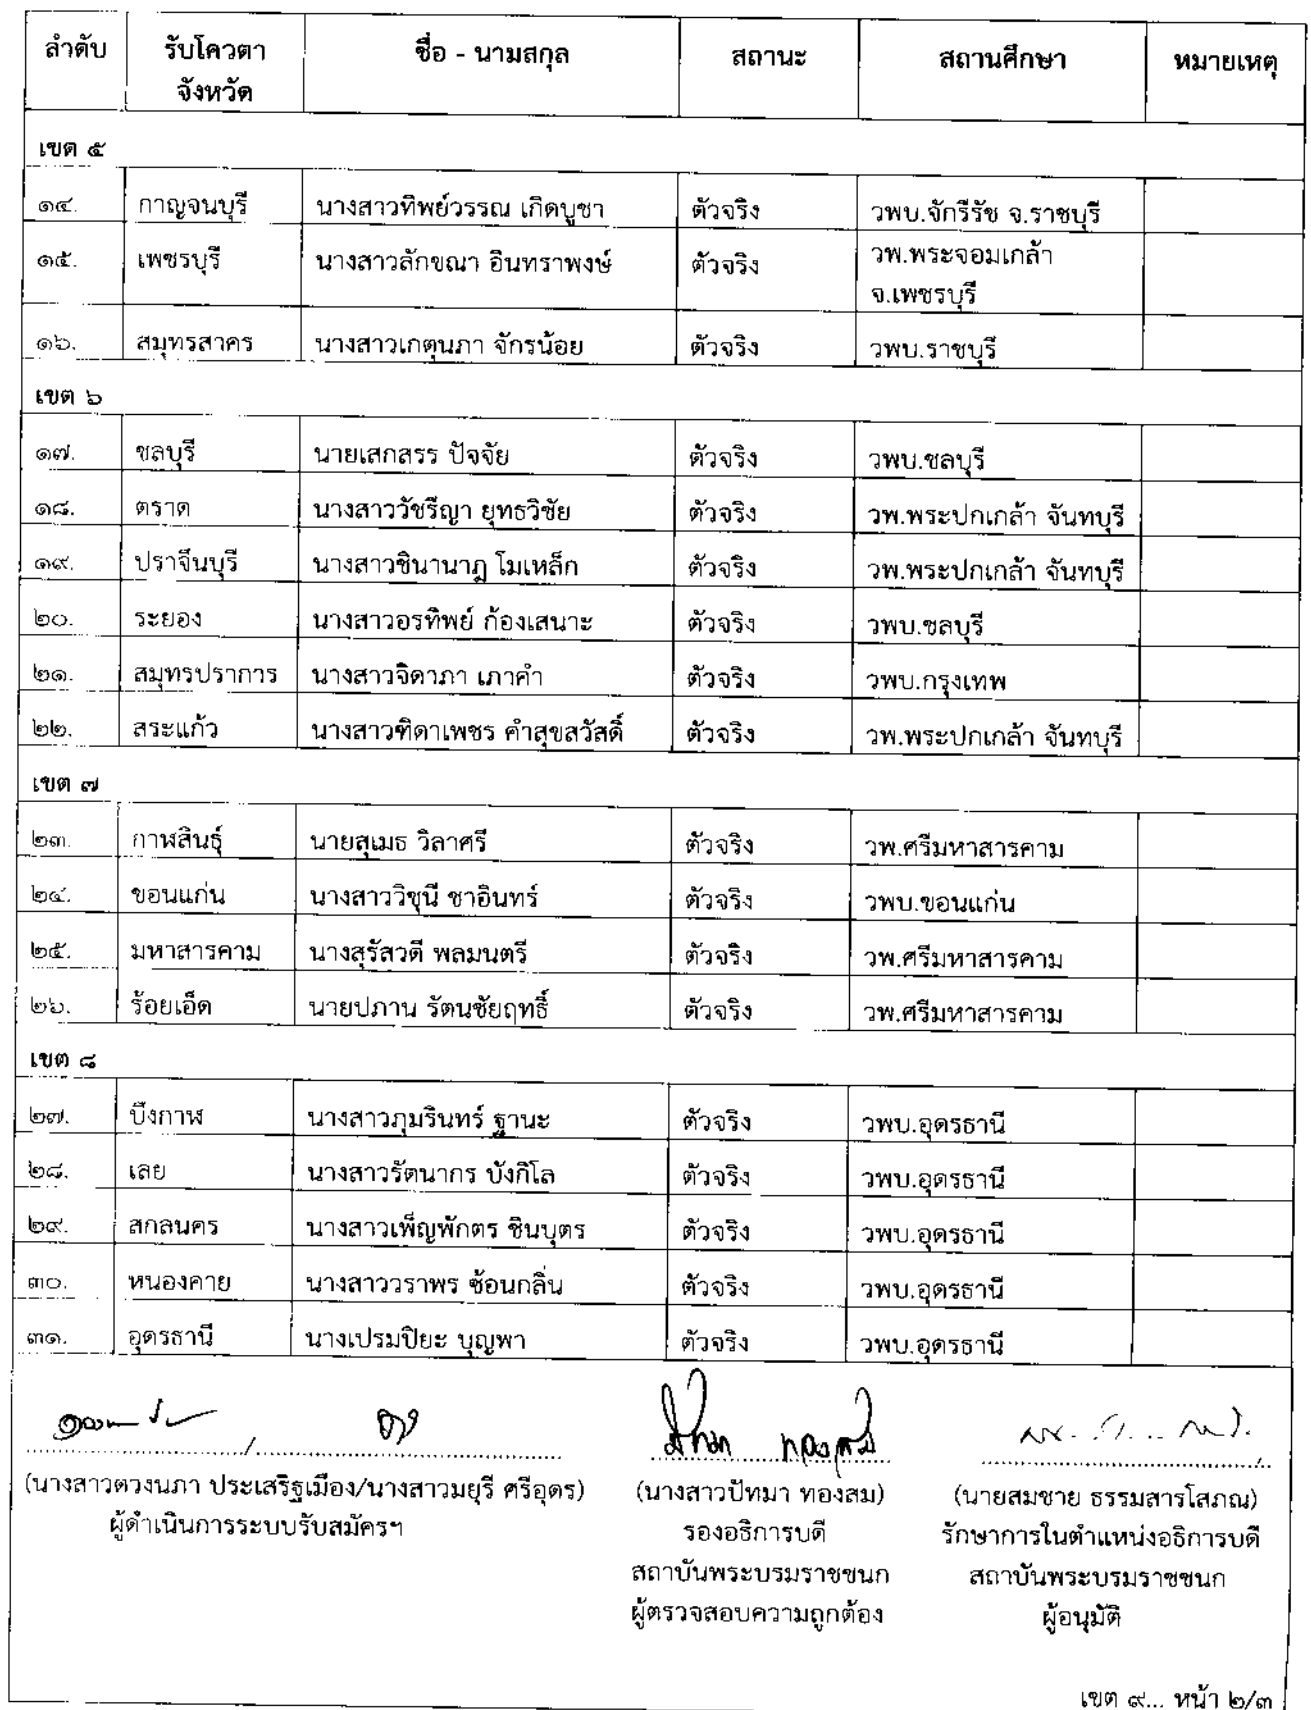 ลำดับ รับโควตา ชื่อ - นามสกุล สถานะ สถานศึกษา หมายเหตุ
จังหวัด
เขต ๕
๑๔. กาญจนบุรี นางสาวทิพย์วรรณ เกิดบูชา ตัวจริง วพบ.จักรีรัช จ.ราชบุรี
๑๕. เพชรบุรี นางสาวลักขณา อินทราพงษ์ ตัวจริง วพ.พระจอมเกล้า
จ.เพชรบุรี
๑๖. สมุทรสาคร นางสาวเกตุนภา จักรน้อย ตัวจริง วพบ.ราชบุรี
เขต ๖
๑๗. ชลบุรี นายเสกสรร ปัจจัย ตัวจริง วพบ.ชลบุรี
๑๘. ตราด นางสาววัชรีญา ยุทธวิชัย ตัวจริง วพ.พระปกเกล้า จันทบุรี
๑๙. ปราจีนบุรี นางสาวชินานาฏ โมเหล็ก ตัวจริง วพ.พระปกเกล้า จันทบุรี
๒๐. ระยอง นางสาวอรทิพย์ ก้องเสนาะ ตัวจริง วพบ.ชลบุรี
๒๑. สมุทรปราการ นางสาวจิดาภา เภาคำ ตัวจริง วพบ.กรุงเทพ
๒๒. สระแก้ว นางสาวฑิดาเพชร คำสุขสวัสดิ์ ตัวจริง วพ.พระปกเกล้า จันทบุรี
เขต ๗
๒๓. กาฬสินธุ์ นายสุเมธ วิลาศรี ตัวจริง วพ.ศรีมหาสารคาม
๒๔. ขอนแก่น นางสาววิชุนี ชาอินทร์ ตัวจริง วพบ.ขอนแก่น
๒๕. มหาสารคาม นางสุรัสวดี พลมนตรี ตัวจริง วพ.ศรีมหาสารคาม
๒๖. ร้อยเอ็ด นายปภาน รัตนชัยฤทธิ์ ตัวจริง วพ.ศรีมหาสารคาม
เขต ๘
๒๗. บึงกาฬ นางสาวภุมรินทร์ ฐานะ ตัวจริง วพบ.อุดรธานี
๒๘. เลย นางสาวรัตนากร บังกิโล ตัวจริง วพบ.อุดรธานี
๒๙. สกลนคร นางสาวเพ็ญพักตร ชินบุตร ตัวจริง วพบ.อุดรธานี
๓๐. หนองคาย นางสาววราพร ซ้อนกลิ่น ตัวจริง วพบ.อุดรธานี
๓๑. อุดรธานี นางเปรมปิยะ บุญพา ตัวจริง วพบ.อุดรธานี
(นางสาวตวงนภา ประเสริฐเมือง/นางสาวมยุรี ศรีอุดร) (นางสาวปัทมา ทองสม) (นายสมชาย ธรรมสารโสภณ)
ผู้ดำเนินการระบบรับสมัครฯ รองอธิการบดี รักษาการในตำแหน่งอธิการบดี
สถาบันพระบรมราชชนก สถาบันพระบรมราชชนก
ผู้ตรวจสอบความถูกต้อง ผู้อนุมัติ
เขต ๙... หน้า ๒/๓